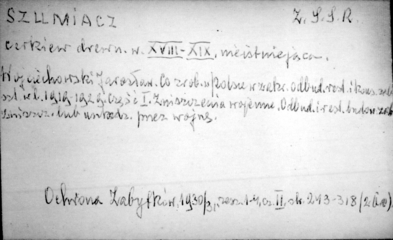 SZUMIACZ Z.S.S.R.
cerkiew drewn. w. XVIII-XIX, nieistniejąca.
Wojciechowski Jarosław. Co zrob. w Polsce w zakr. Odbud. rest. i kons. zab.
od r. 1919 1929. Część I. Zniszczenia wojenne. Odbud. i rest. budow. zab.
zniszcz. lub uszkodz. przez wojnę.
Ochrona Zabytków, 1930/31, zesz. 1-4, cz. II, str. 243-318